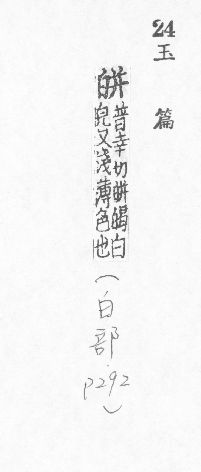 24
玉篇
皏
普幸切皏白
皃又淺薄色也
(白部.
p292)